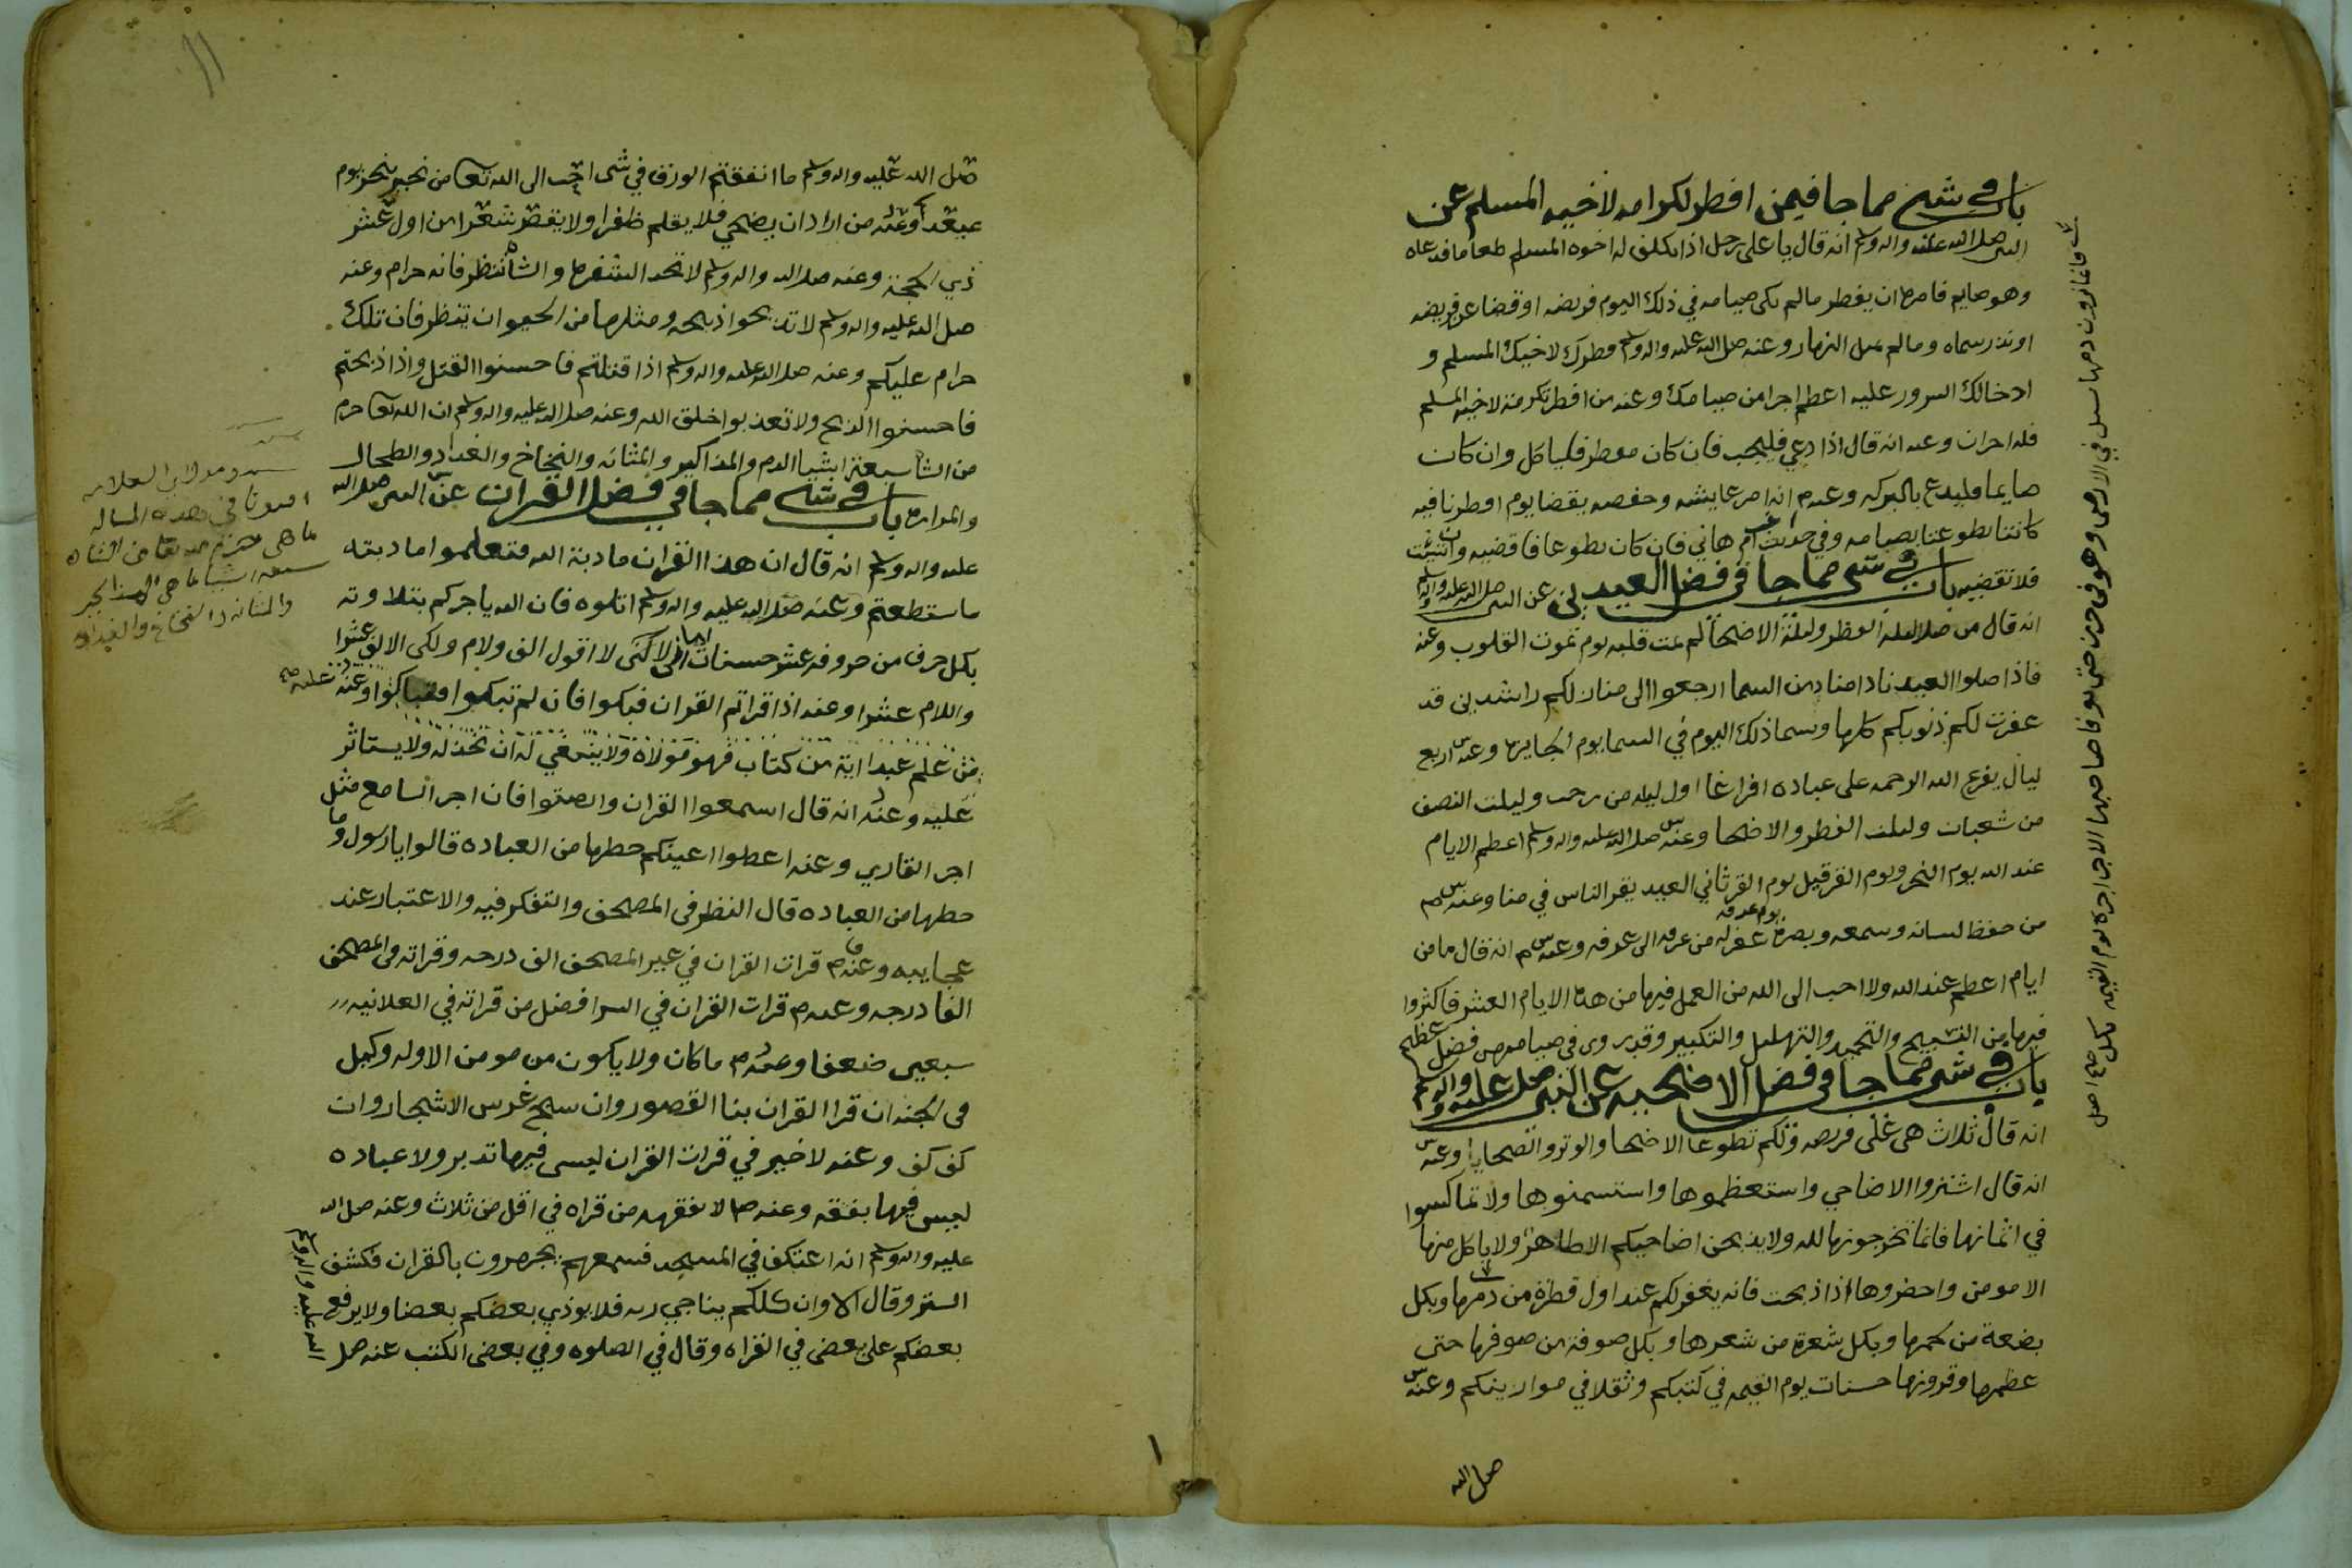 باب في شي مما جا فيمن افطر لكرامه لاخيه المسلم عن
النبي صلى الله عليه واله وسلم انه قال يا علي رجل اذا تكلف له اخوه المسلم طعاما فدعاه
وهو صايم فامره ان يفطر مالم يكن صيامه في ذلك اليوم فريضه او قضا عن فريضه
او نذر سماه ومالم يمل النهار وعنه صلى الله عليه واله وسلم فطرك لاخيك المسلم و
ادخالك السرور عليه اعظم اجرا من صيامك وعنه من افطر تكرمة لاخيه المسلم
فله اجران وعنه انه قال اذا دعي فليجب فان كان مفطر فلياكل وان كان
صايما فليدع بالبركه وعنه انه امر عايشه وحفصه بقضا يوم افطرنا فيه
كانتا تطوعتا بصيامه وفي حديث ام هاني فان كان تطوعا فاقضيه وان شيت
فلا تقضيه باب في شي مما جا في فضل العيدين عن النبي صلى الله عليه واله وسلم
انه قال من صلا ليلة الفطر وليلة الاضحا لم يمت قلبه يوم تموت القلوب وعنه
فاذا صلوا العيد نادا مناد من السما ارجعوا الى منازلكم راشدين قد
غفرت لكم ذنوبكم كلها وسما ذلك اليوم في السما يوم الجايزه وعنه اربع
ليال يفرغ الله الرحمه على عباده افراغا اول ليله من رجب وليلت النصف
من شعبان وليلت الفطر والاضحا وعنه صلى الله عليه واله وسلم اعظم الايام
عند الله يوم النحر ويوم القر قيل يوم القر ثاني العيد يقر الناس في منا وعنه
من حفظ لسانه وسمعه وبصره يوم عرفه غفر له من عرفه الى عرفه وعنه انه قال ما من
ايام اعظم عند الله ولا احب الى الله من العمل فيها من هذه الايام العشر فاكثروا
فيها من التسبيح والتحميد والتهليل والتكبير وقد روي في صيامهن فضل عظيم
باب في شي مما جا في فضل الاضحيه عن النبي صلى الله عليه واله وسلم
انه قال ثلاث هي علي فريضه ولكم تطوعا الاضحا والوتر والضحايا وعنه
انه قال اشتروا الاضاحي واستعظموها واستسمنوها ولا تماكسوا
في اثمانها فانما تخرجونها لله ولا يذبحن اضاحيكم الا طاهر ولا ياكل منها
الا مومن واحضروها اذا ذبحت فانه يغفر لكم عند اول قطرة من دمها وبكل
بضعة من لحمها وبكل شعرة من شعرها وبكل صوفة من صوفها حتى
عظمها وقرونها حسنات يوم القيمه في كتبكم وثقلا في موازينكم وعنه
صلى الله
صلى الله عليه واله وسلم ما انفقتم الورق في شي احب الى الله تعا من نحير ينحر يوم
عيد وعنه من اراد ان يضحي فلا يقلم ظفرا ولا يقص شعرا من اول عشر
ذي الحجة وعنه صلى الله عليه واله وسلم لا تحد الشفره والشاة تنظر فانه حرام وعنه
صلى الله عليه واله وسلم لا تذبحوا ذبيحه ومثلها من الحيوان تنظر فان تلك
حرام عليكم وعنه صلى الله عليه واله وسلم اذا قتلتم فاحسنوا القتل واذا ذبحتم
فاحسنوا الذبح ولا تعذبوا خلق الله وعنه صلى الله عليه واله وسلم ان الله تعا حرم
من الشاة سبعة اشيا الدم والمذاكير والمثانه والنخاخ والغداد والطحال
والمراره باب في شي مما جا في فضل القران عن النبي صلى الله
عليه واله وسلم انه قال ان هذا القران مادبة الله فتعلموا مادبته
ما ستطعتم وعنه صلى الله عليه واله وسلم اتلوه فان الله ياجركم بتلاوته
بكل حرف من حروفه عشر حسنات اما اني لا اقول الف ولام ولكن الالف عشرا
واللام عشرا وعنه اذا قراتم القران فبكوا فان لم تبكوا فتباكوا وعنه
من علم عبدا اية من كتاب فهو مولاه ولا ينبغي له ان تخذله ولا يستاثر
عليه وعنه انه قال اسمعوا القران وانصتوا فان اجر السامع مثل
اجر القاري وعنه اعطوا اعينكم حظها من العباده قالوا يا رسول وما
حظها من العباده قال النظر في المصحف والتفكر فيه والاعتبار عند
عجايبه وعنه قرات القران في غير المصحف الف درجه وقراته في المصحف
الفا درجه وعنه قرات القران في السر افضل من قراته في العلانيه
سبعين ضعفا وعنه ما كان ولا يكون من مومن الا وله وكيل
في الجنه ان قرا القران بنا القصور وان سبح غرس الاشجار وان
كف كف وعنه لا خير في قرات القران ليس فيها تدبر ولا عباده
ليس فيها بفقه وعنه لا يفقهه من قراه في اقل من ثلاث وعنه صلى الله
عليه واله وسلم انه اعتكف في المسجد فسمعهم يجهرون بالقران فكشف
الستر وقال الا وان كلكم يناجي ربه فلا يوذي بعضكم بعضا ولا يرفع
بعضكم على بعض في القراه وقال في الصلوه وفي بعض الكتب عنه صلى
الله عليه واله وسلم